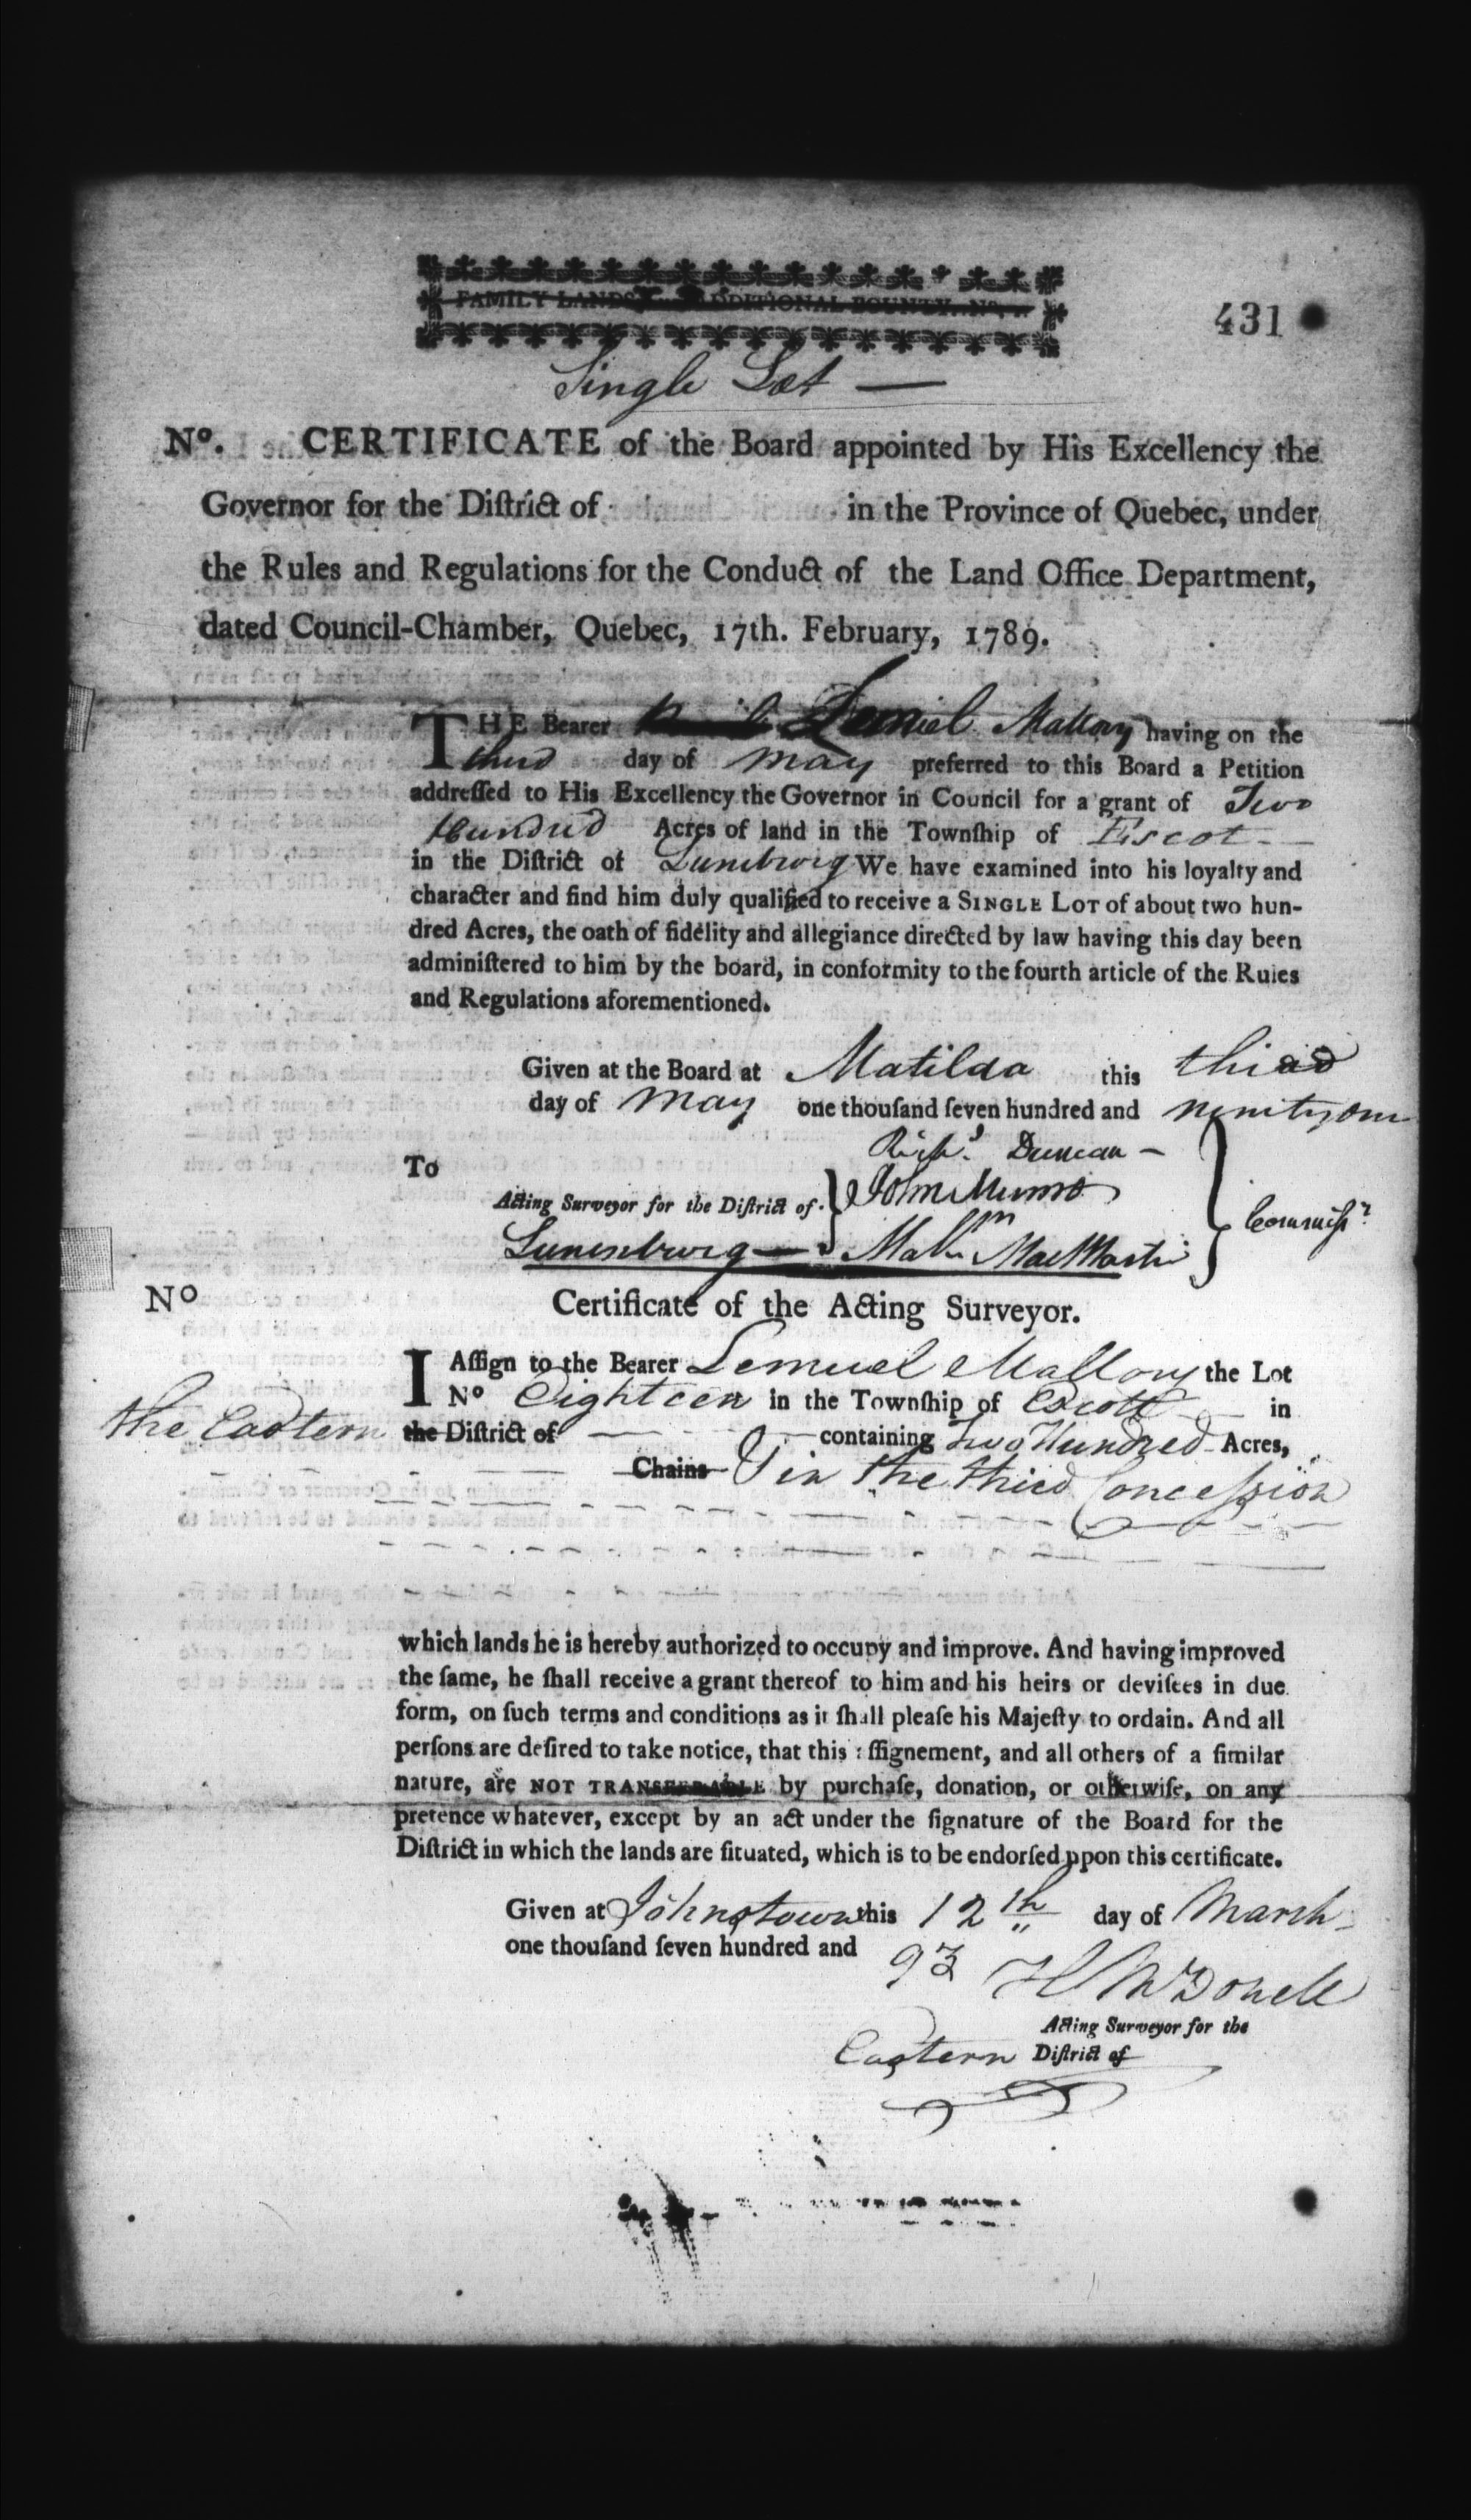 FAMILY LANDS ADDITIONAL BOUNTY. No.
431
Single Lot —
No. CERTIFICATE of the Board appointed by His Excellency the
Governor for the Diſtrict of in the Province of Quebec, under
the Rules and Regulations for the Conduct of the Land Office Department,
dated Council-Chamber, Quebec, 17th. February, 1789.
THE Bearer Lemuel Mallory having on the
third day of May preferred to this Board a Petition
addreſſed to His Excellency the Governor in Council for a grant of Two
Hundred Acres of land in the Townſhip of Escot
in the Diſtrict of Lunebourg We have examined into his loyalty and
character and find him duly qualified to receive a SINGLE LOT of about two hun-
dred Acres, the oath of fidélity and allegiance directed by law having this day been
adminiſtered to him by the board, in conformity to the fourth article of the Rules
and Regulations aforementioned.
Given at the Board at Matilda this third
day of May one thouſand ſeven hundred and ninety one
Richd. Duncan —
To
John Munro
Acting Surveyor for the Diſtrict of
Commiſrs
Lunenburg — Malm MacMartin
No Certificate of the Acting Surveyor.
I Aſſign to the Bearer Lemuel Mallory the Lot
No Eighteen in the Townſhip of Escott in
the Eastern the Diſtrict of containing Two Hundred Acres,
Chains in the third Conceſsion
which lands he is hereby authorized to occupy and improve. And having improved
the ſame, he ſhall receive a grant thereof to him and his heirs or deviſees in due
form, on ſuch terms and conditions as it ſhall pleaſe his Majeſty to ordain. And all
perſons are deſired to take notice, that this aſſignement, and all others of a ſimilar
nature, are NOT TRANSFERABLE by purchaſe, donation, or otherwiſe, on any
pretence whatever, except by an act under the ſignature of the Board for the
Diſtrict in which the lands are ſituated, which is to be endorſed upon this certificate.
Given at Johnstown this 12th day of March
one thouſand ſeven hundred and 93 H McDonell
Acting Surveyor for the
Eastern Diſtrict of